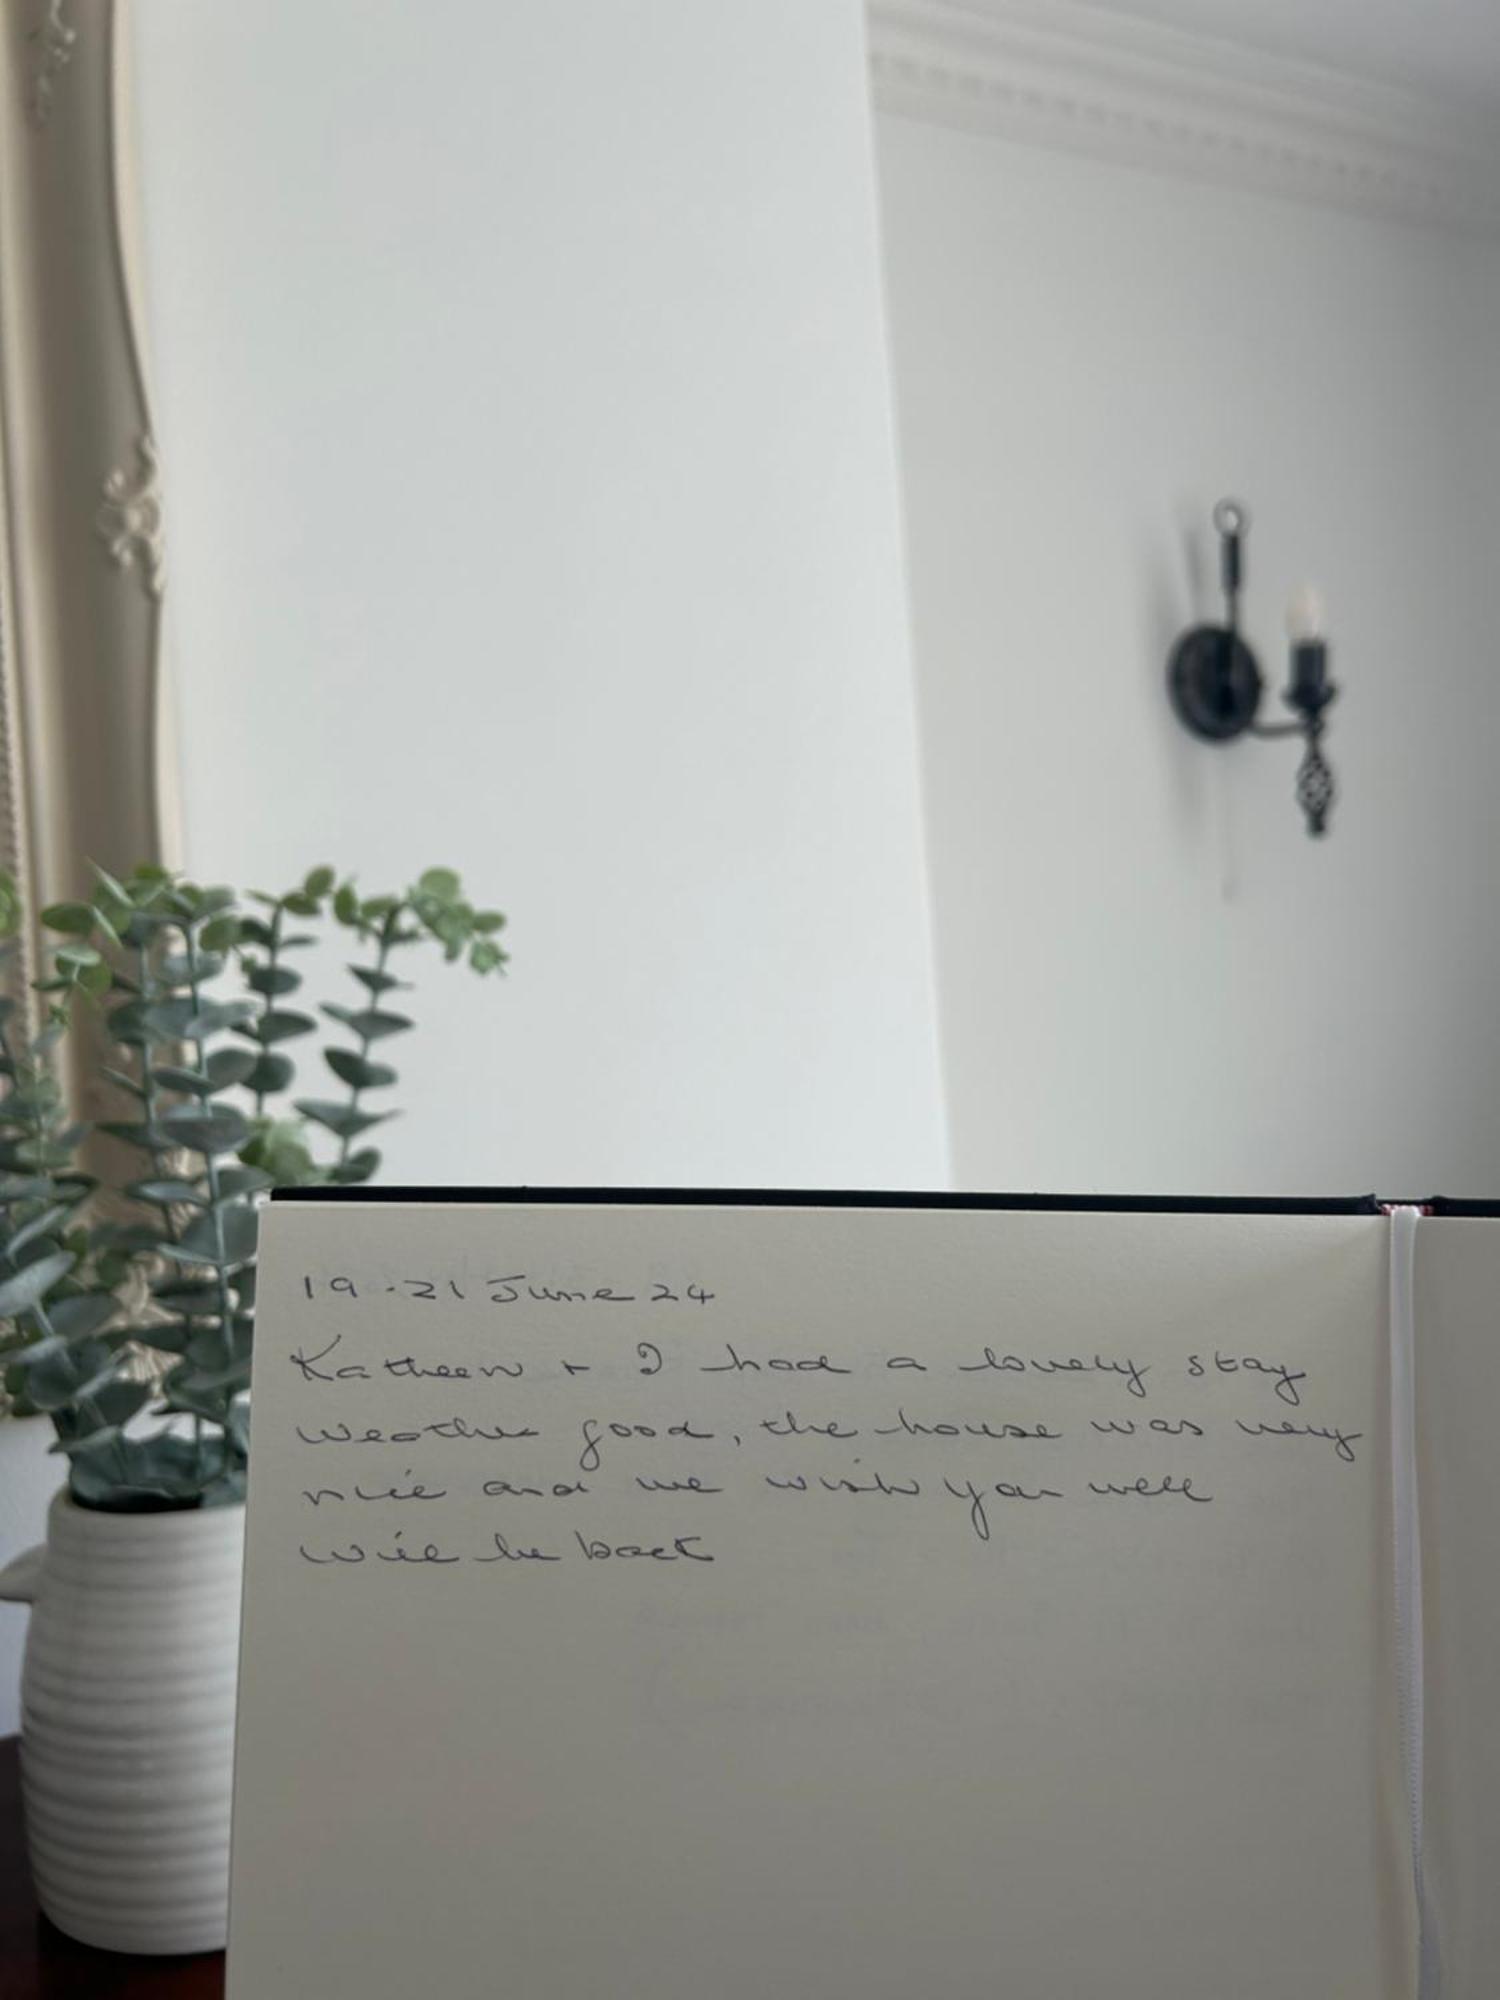 19-21 June 24
Kathleen + I had a lovely stay
weather good, the house was very
nice and we wish you well
will be back